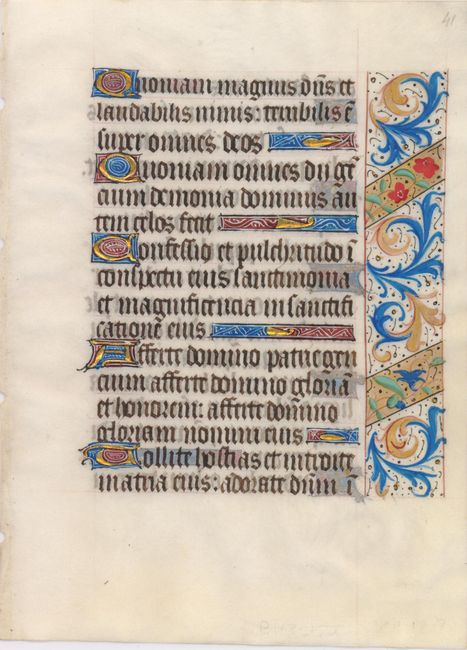 41
Quoniam magnus dn̄s et
laudabilis nimis: terribilis ē
super omnes deos
Quoniam omnes dij gē
cium demonia dominus au
tem celos fecit
Confessio et pulchritudo ī
conspectu eius sanctimonia
et magnificencia in sanctifi
catione eius
Afferte domino patrie gen
cium afferte domino gloriā
et honorem: afferte domino
gloriam nomini eius
Tollite hostias et introite
in atria eius: adorate dn̄m ī